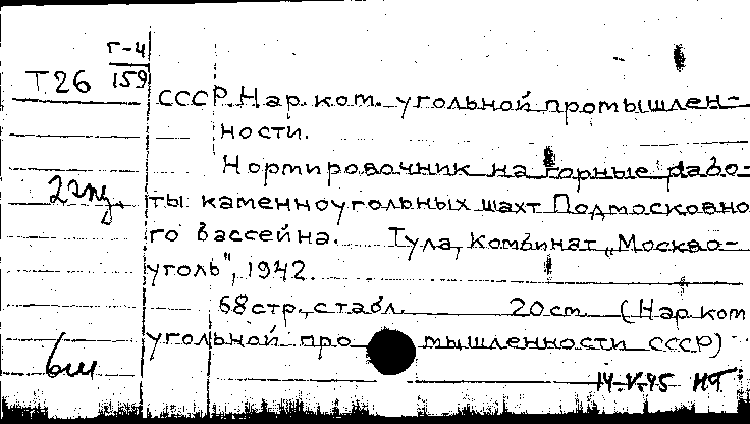 Г-4
Т26 159
СССР. Нар. ком. угольной промышлен-
ности.
Нормировочник на горные рабо-
2 экз. ты каменноугольных шахт Подмосковно
го бассейна. Тула, Комбинат „Москво-
уголь", 1942.
68 стр., с табл. 20 см (Нар ком
угольной промышленности СССР)
14.V.45